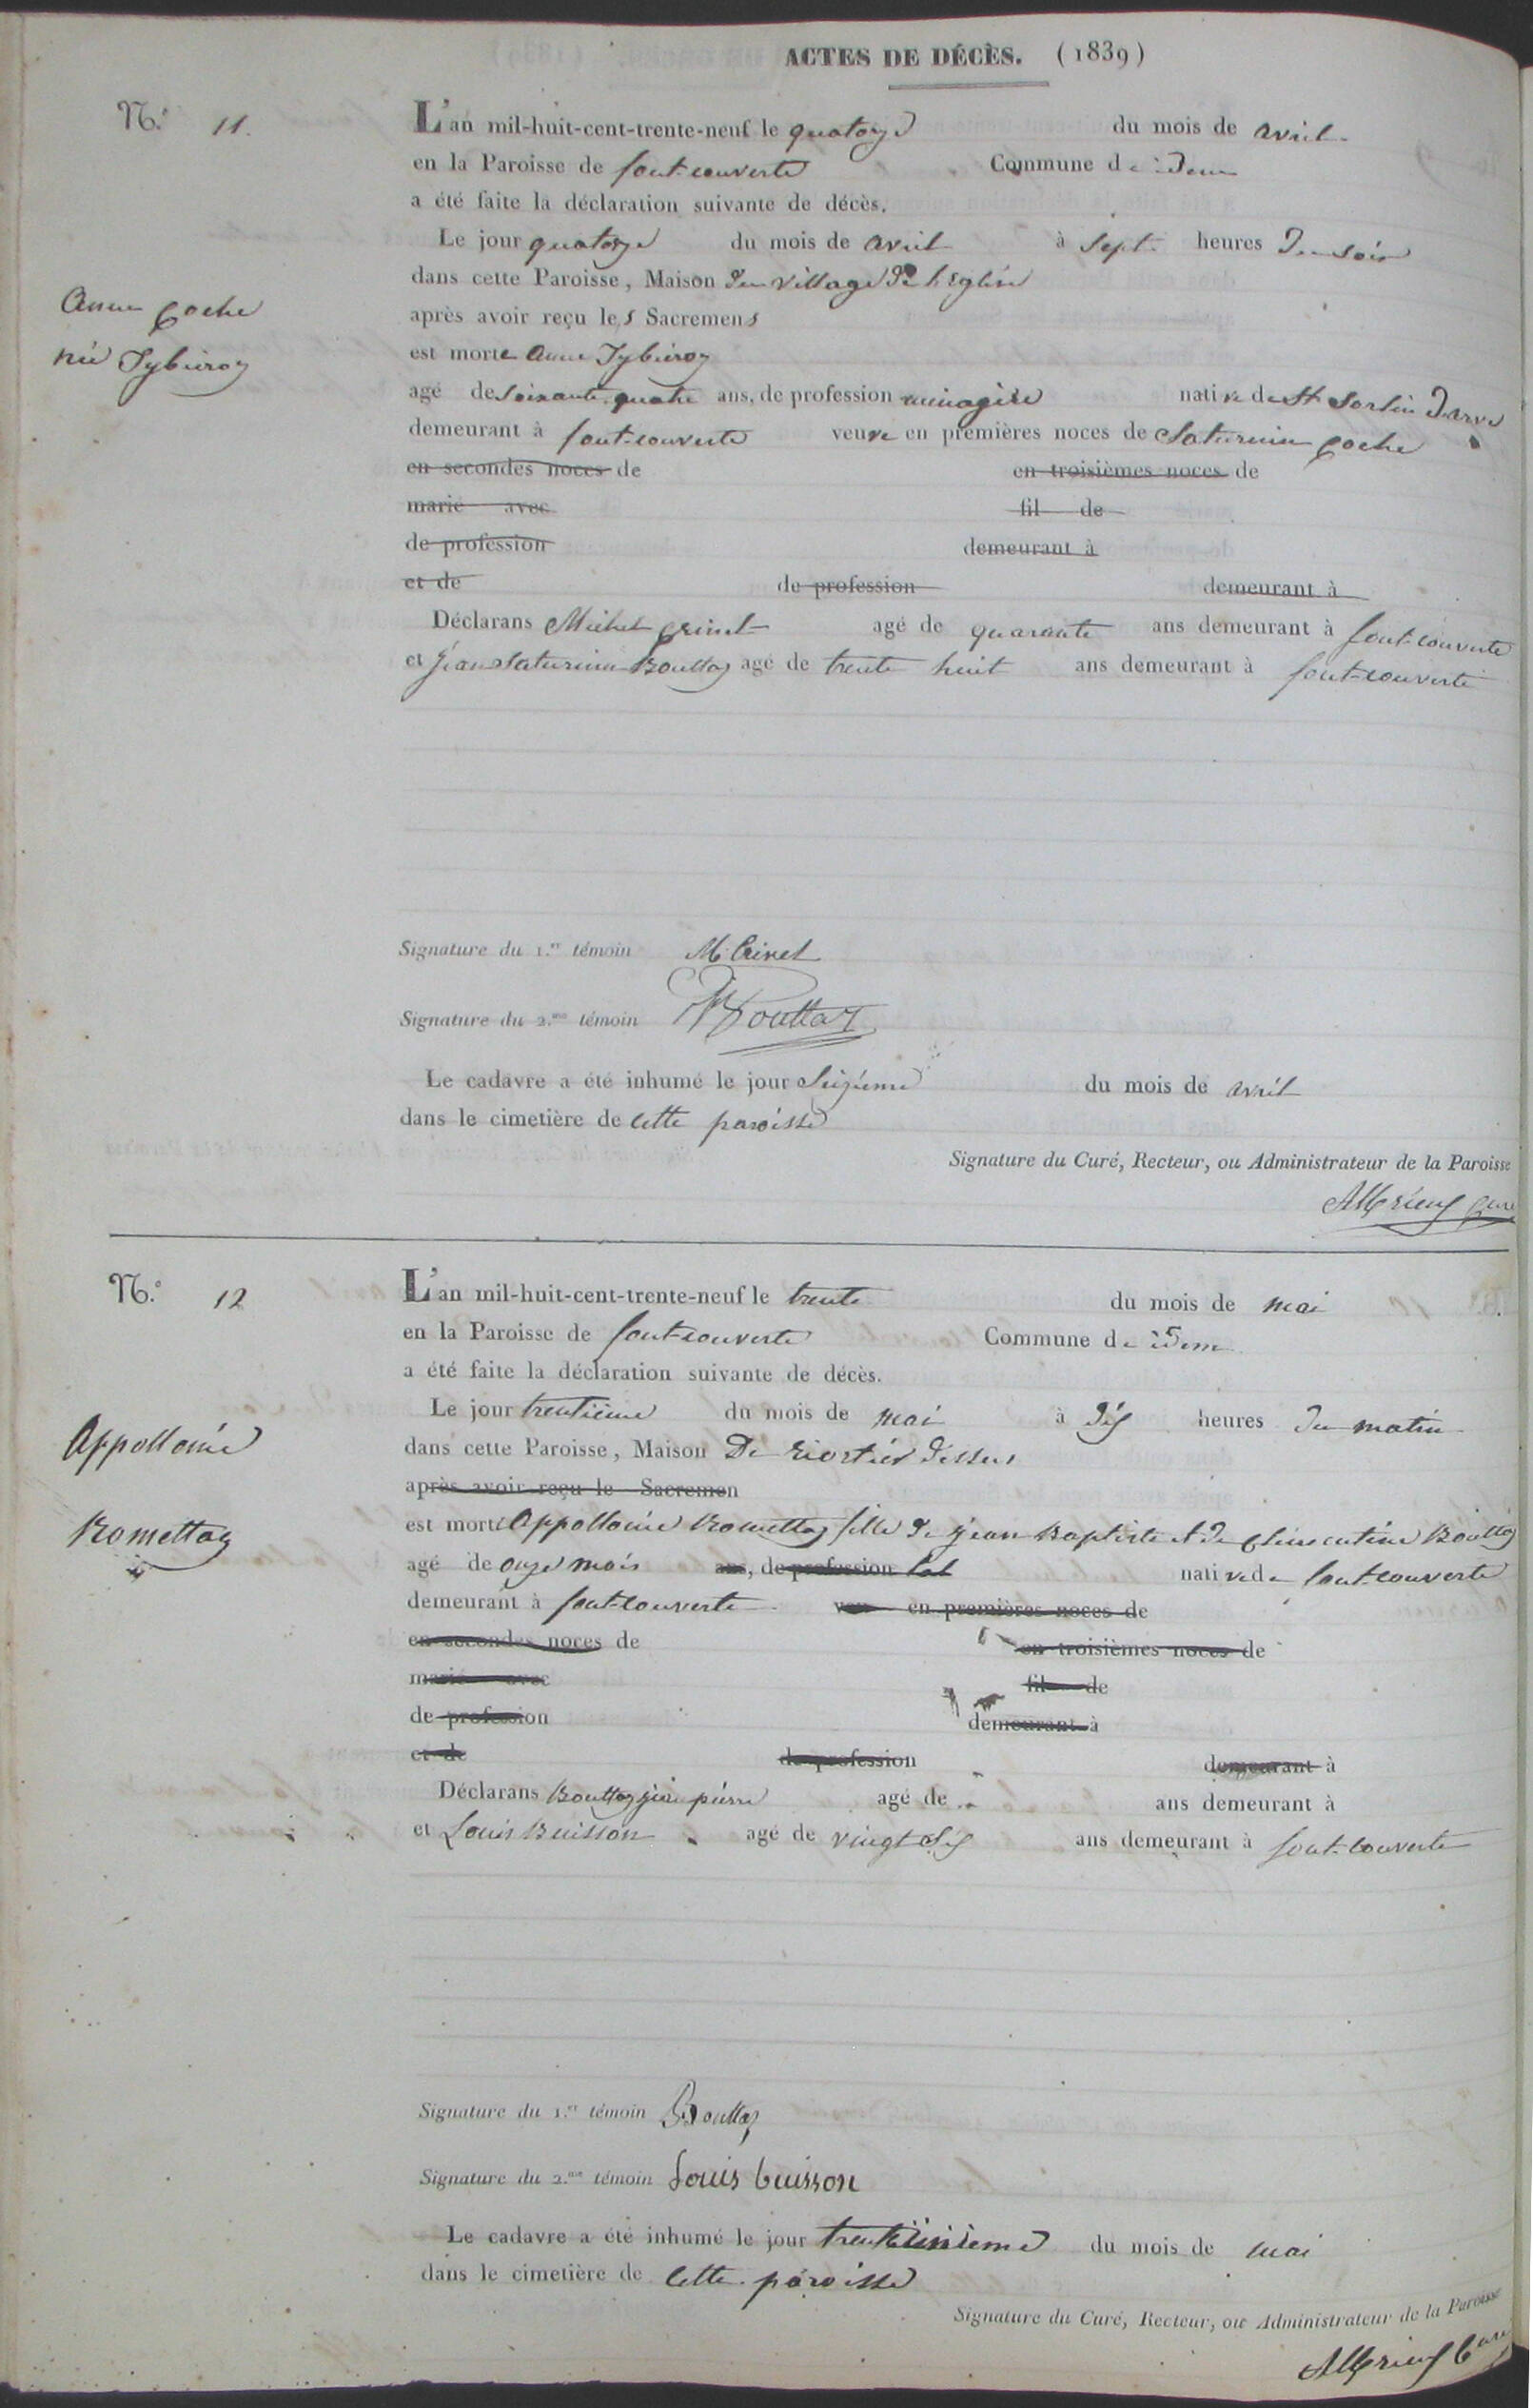 ACTES DE DÉCÈS. (1839)
N.º 11.
L'an mil-huit-cent-trente-neuf le quatorze du mois de avril
en la Paroisse de font-couverte Commune de idem
a été faite la déclaration suivante de décès.
Le jour quatorze du mois de avril à sept heures du soir
dans cette Paroisse, Maison du village de l'Eglise
après avoir reçu les Sacremens
Anne Coche
née Sybieroz
est morte Anne Sybieroz
agé de soixante quatre ans, de profession ménagère native de St Sorlin d'arve
demeurant à font-couverte veuve en premières noces de Saturnin Coche
en secondes noces de en troisièmes noces de
marié avec fil de
de profession demeurant à
et de de profession demeurant à
Déclarans Michel Crinel agé de quarante ans demeurant à font-couverte
et Jean Saturnin Bouttaz agé de trente huit ans demeurant à font-couverte
Signature du 1.er témoin M. Crinel
Signature du 2.me témoin Bouttaz
Le cadavre a été inhumé le jour seizième du mois de avril
dans le cimetière de cette paroisse
Signature du Curé, Recteur, ou Administrateur de la Paroisse
Curé
N.º 12
L'an mil-huit-cent-trente-neuf le trente du mois de mai
en la Paroisse de font-couverte Commune de idem
a été faite la déclaration suivante de décès.
Le jour trentième du mois de mai à dix heures du matin
dans cette Paroisse, Maison De riortier dessus
après avoir reçu le Sacremen
Appollonie
Romettaz
est morte Appollonie Romettaz fille de jean Baptiste et de Clémentine Bouttaz
agé de onze mois ans, de profession native de font-couverte
demeurant à font-couverte veu en premières noces de
en secondes noces de en troisièmes noces de
marié avec fil de
de profession demeurant à
et de de profession demeurant à
Déclarans Bouttaz jean pierre agé de ans demeurant à
et Louis Buisson agé de vingt six ans demeurant à font-couverte
Signature du 1.er témoin Bouttaz
Signature du 2.me témoin Louis buisson
Le cadavre a été inhumé le jour trente unième du mois de mai
dans le cimetière de cette paroisse
Signature du Curé, Recteur, ou Administrateur de la Paroisse
Curé